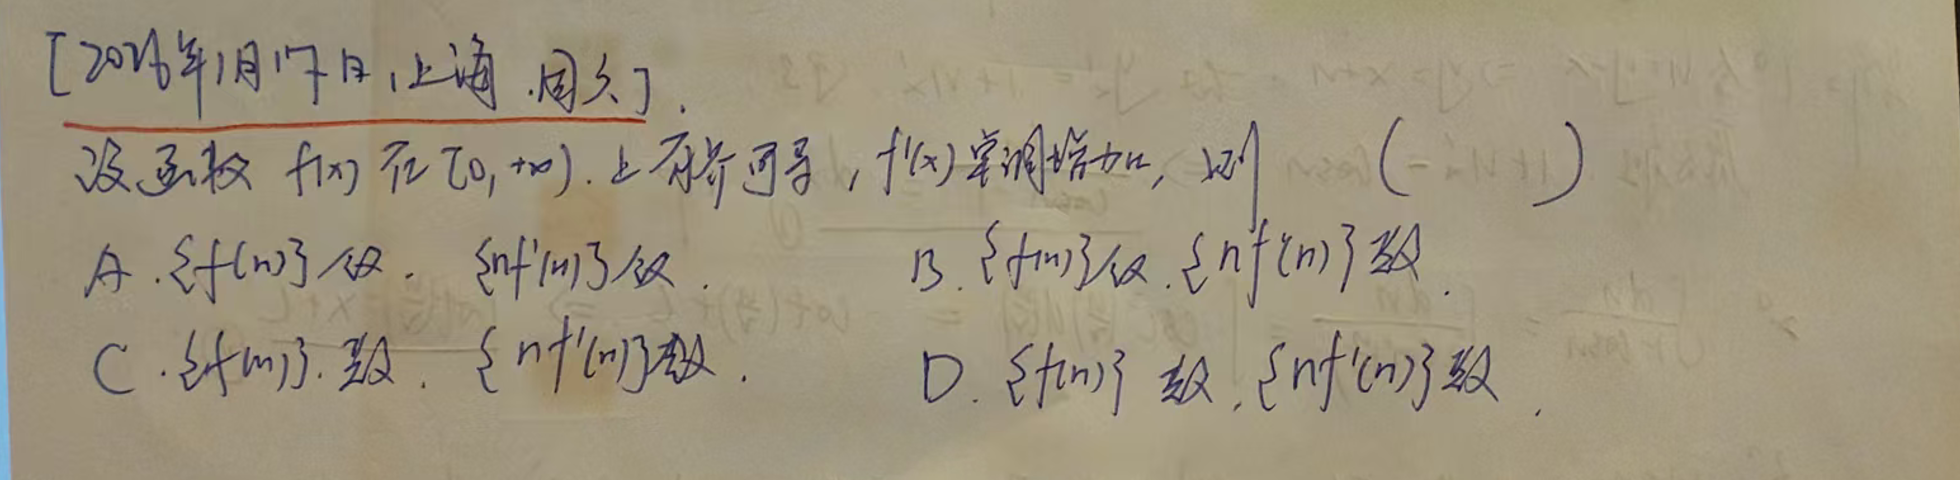 [2026年1月17日,上海.周六].
设函数 f(x) 在 [0,+∞).上有界可导, f'(x)单调增加, 则 ( )
A.{f(n)}收. {nf'(n)}收. B.{f(n)}收.{nf'(n)}散.
C.{f(n)}.散. {nf'(n)}散. D.{f(n)} 散,{nf'(n)}散.